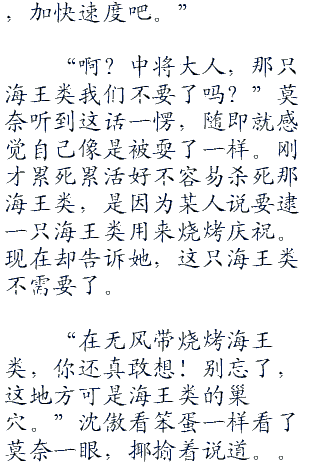 ，加快速度吧。”
“啊？中将大人，那只
海王类我们不要了吗？”莫
奈听到这话一愣，随即就感
觉自己像是被耍了一样。刚
才累死累活好不容易杀死那
海王类，是因为某人说要逮
一只海王类用来烧烤庆祝。
现在却告诉她，这只海王类
不需要了。
“在无风带烧烤海王
类，你还真敢想！别忘了，
这地方可是海王类的巢
穴。”沈傲看笨蛋一样看了
莫奈一眼，揶揄着说道。。